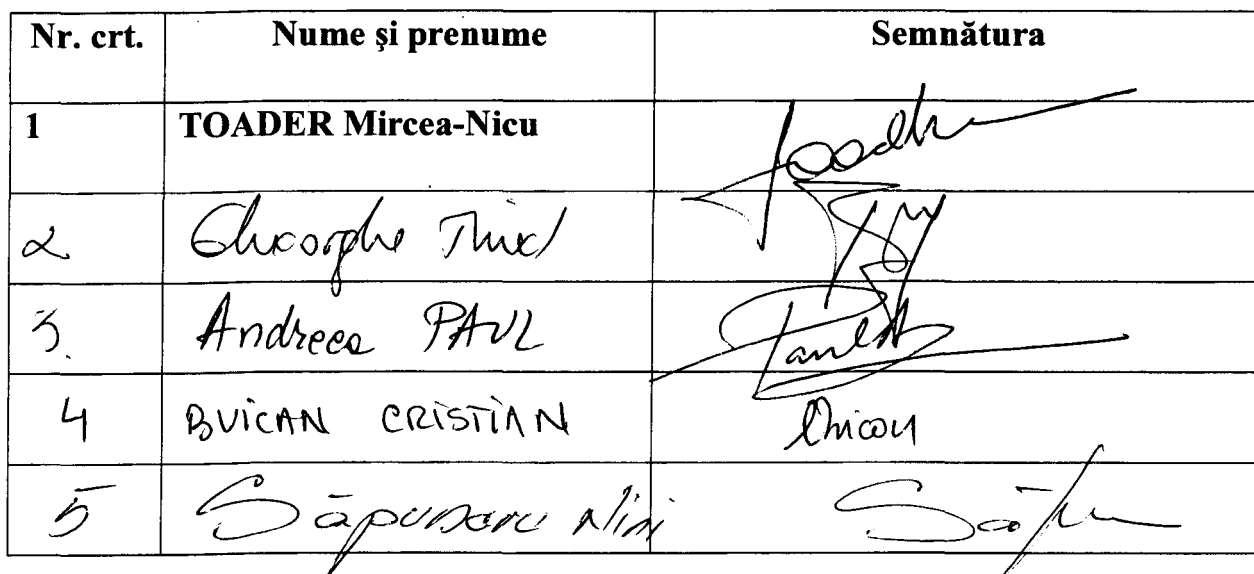 Nr. crt. Nume și prenume Semnătura
1 TOADER Mircea-Nicu Toader
2 Gheorghe
3. Andreea PAUL Paul
4 BUICAN CRISTIAN
5 Săpunaru Nini